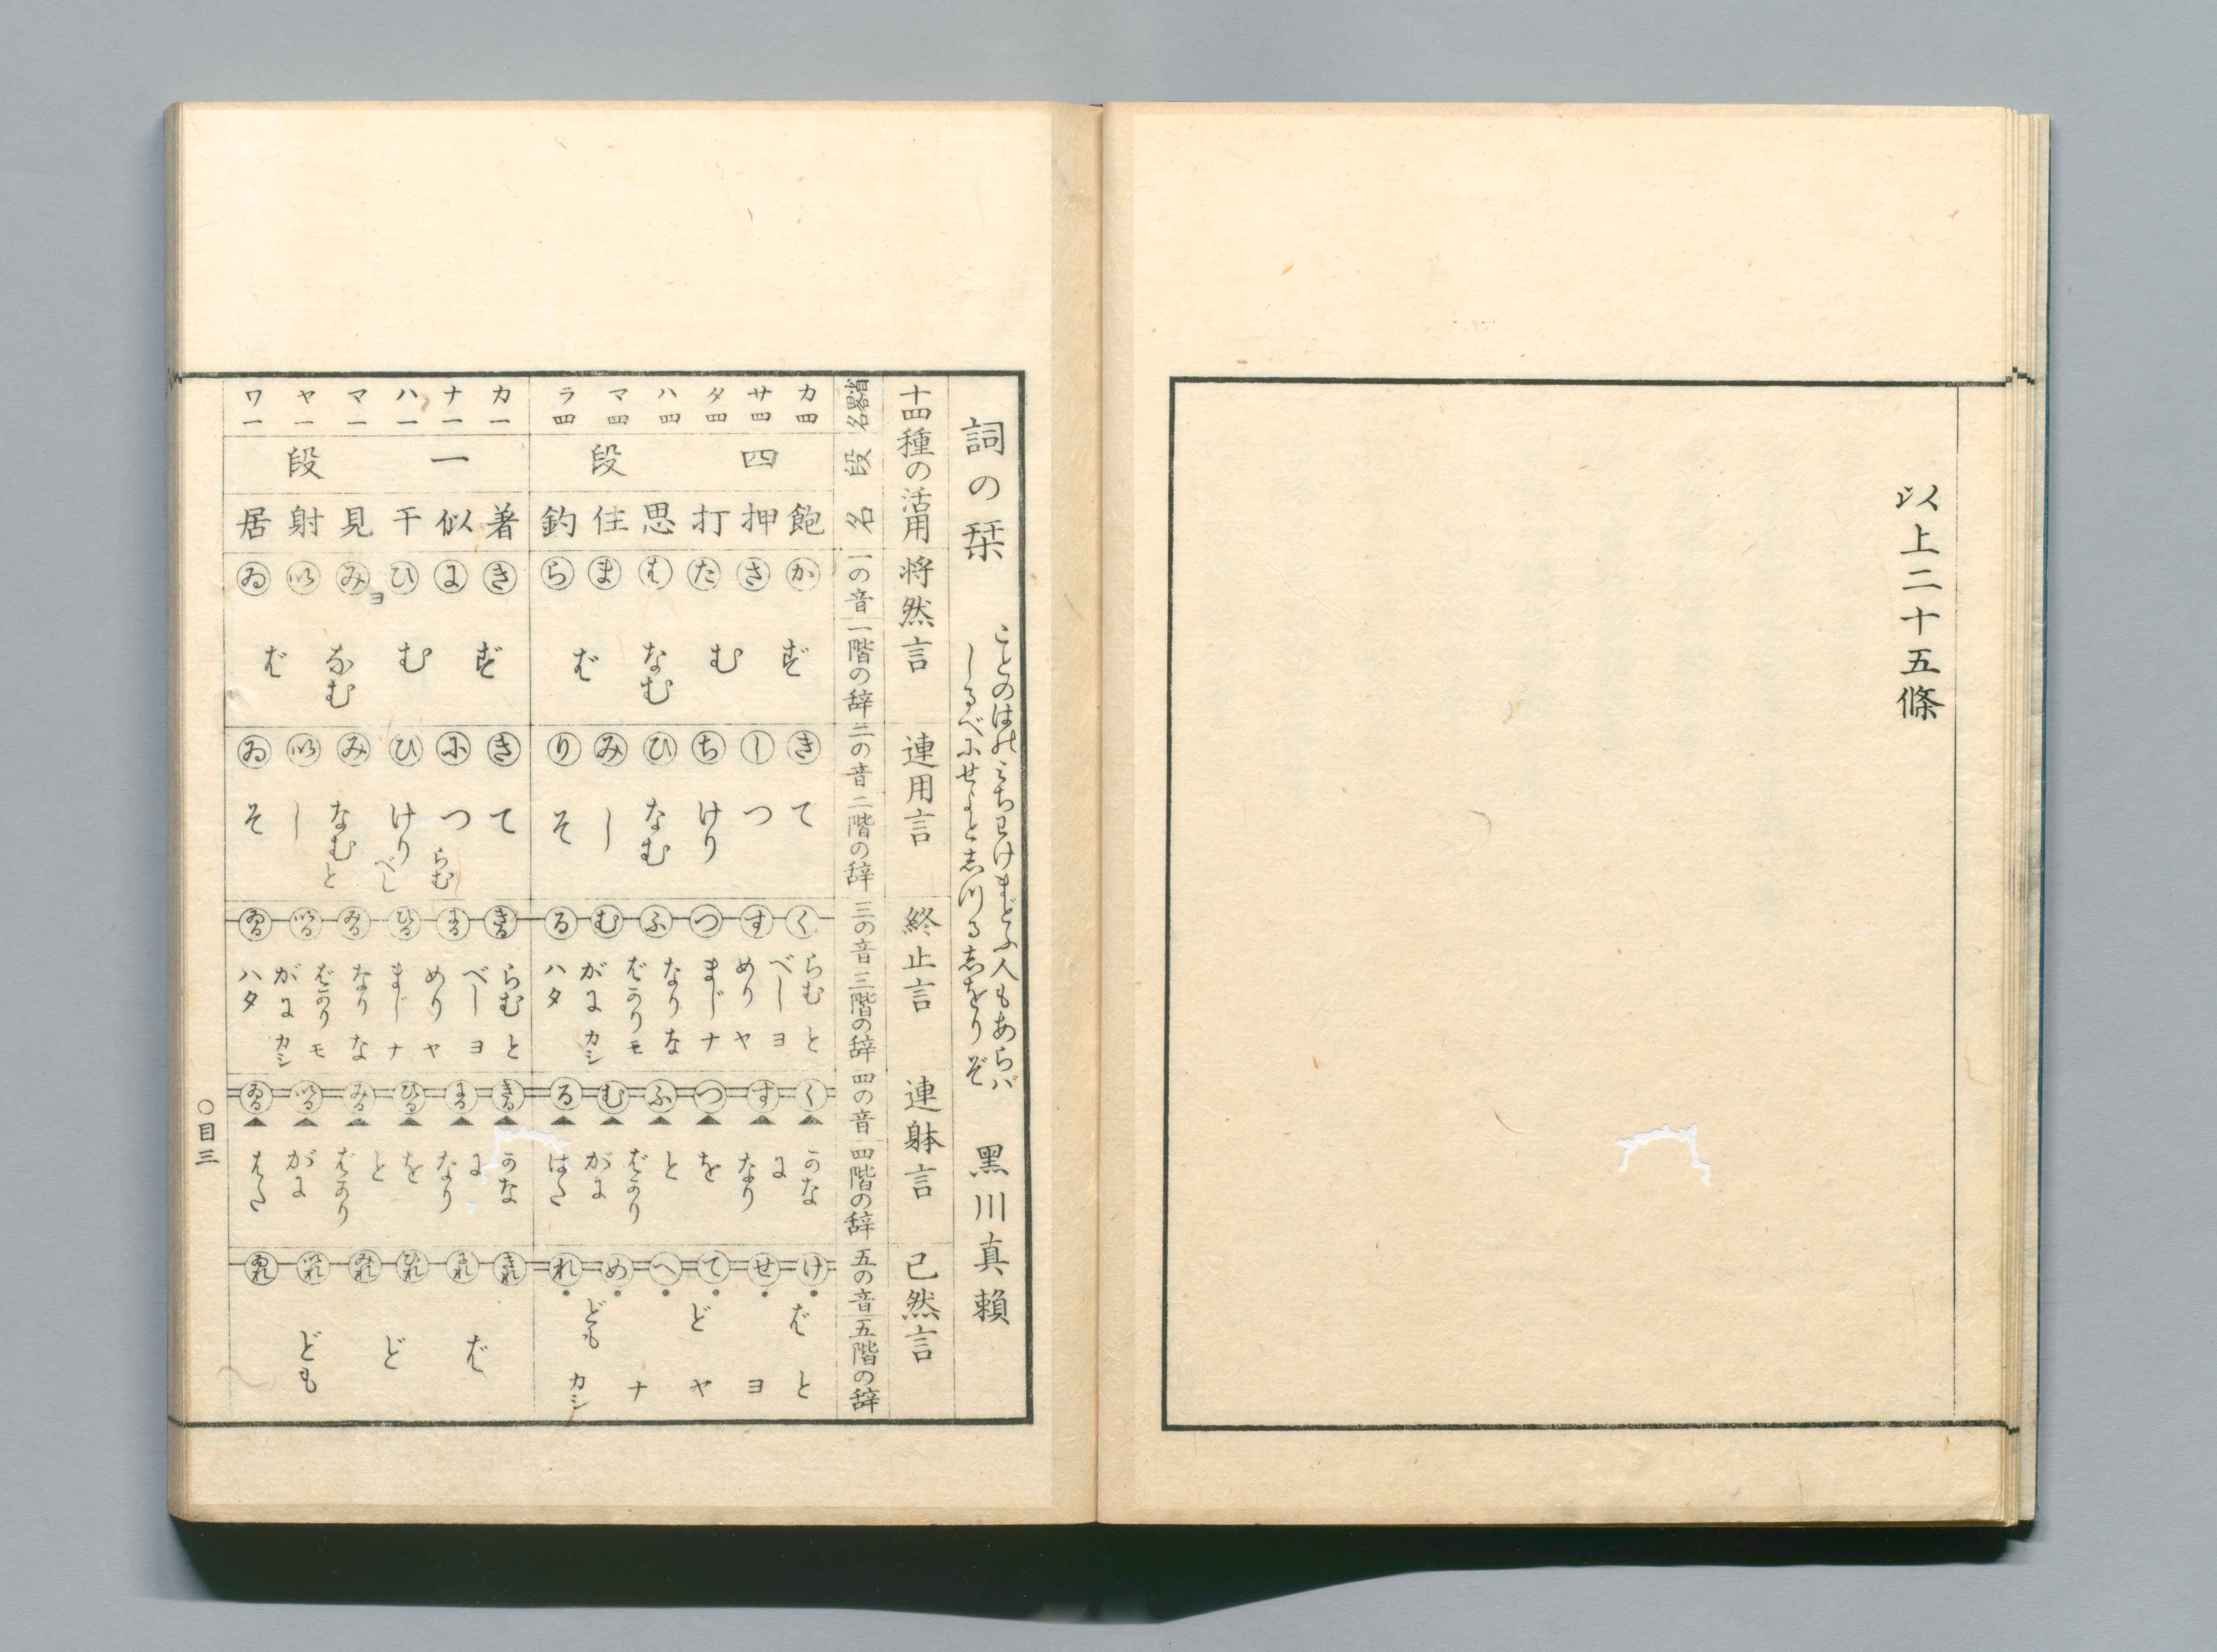 以上二十五條
詞の栞
ことのはのみちわけまどふ人もあらバ
しるべにせよと志つる志をりぞ
黒川真頼
十四種の活用
将然言
連用言
終止言
連躰言
已然言
省畧名
段名
一の音
一階の辞
二の音
二階の辞
三の音
三階の辞
四の音
四階の辞
五の音
五階の辞
カ四 サ四 タ四 ハ四 マ四 ラ四
四段
飽 押 打 思 住 釣
か さ た は ま ら
ず む なむ ば
き し ち ひ み り
て つ けり なむ し そ
く す つ ふ む る
らむ べし めり まじ なり ばかり がに ハタ
と ヨ ヤ ナ な モ カシ
く す つ ふ む る
かな に なり を と ばかり がに はた
け せ て へ め れ
ば ど ども
と ヨ ヤ ナ カシ
カ一 ナ一 ハ一 マ一 ヤ一 ワ一
一段
着 似 干 見 射 居
き に ひ み い ゐ
ヨ
ず む なむ ば
き に ひ み い ゐ
て つ けり なむ し そ
らむ べし と
きる にる ひる みる いる ゐる
らむ べし めり まじ なり ばかり がに ハタ
と ヨ ヤ ナ な モ カシ
きる にる ひる みる いる ゐる
かな に なり を と ばかり がに はた
きれ にれ ひれ みれ いれ ゐれ
ば ど ども
〇目三